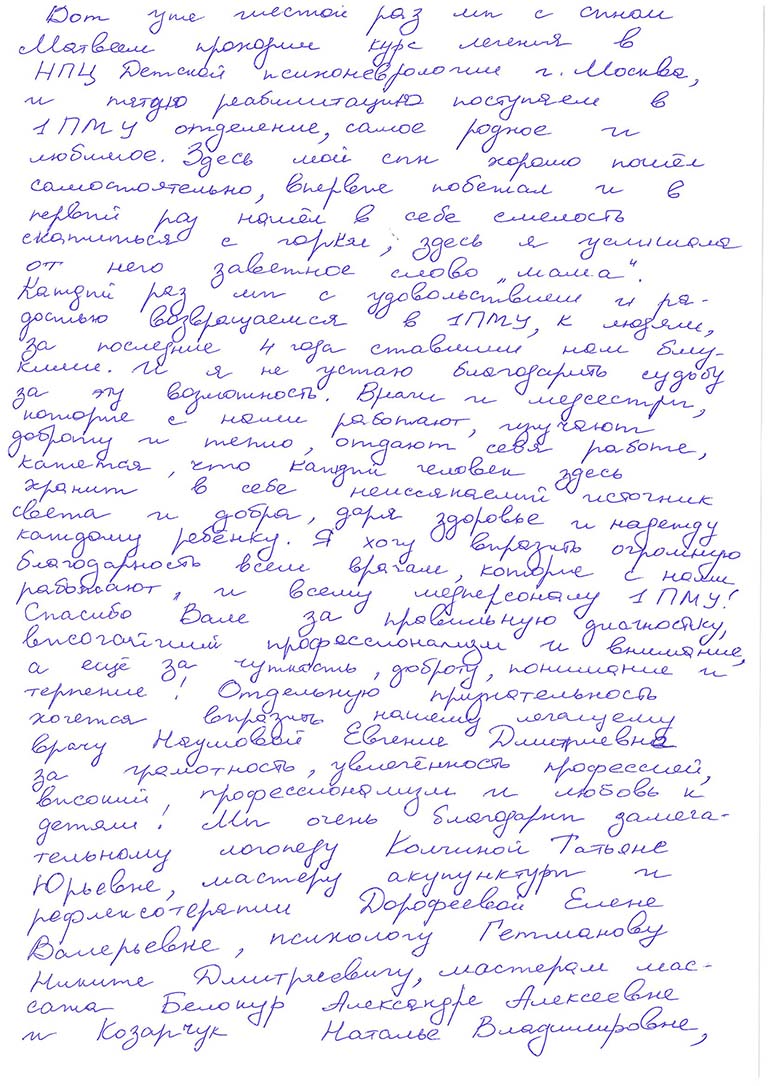 Вот уже шестой раз мы с сыном
Матвеем проходим курс лечения в
НПЦ Детской психоневрологии г. Москва,
и пятую реабилитацию поступаем в
1 ПМУ отделение, самое родное и
любимое. Здесь мой сын хорошо пошёл
самостоятельно, впервые побежал и в
первый раз нашёл в себе смелость
скатиться с горки, здесь я услышала
от него заветное слово „мама“.
Каждый раз мы с удовольствием и ра-
достью возвращаемся в 1ПМУ, к людям,
за последние 4 года ставшими нам близ-
кими. И я не устаю благодарить судьбу
за эту возможность. Врачи и медсестры,
которые с нами работают, излучают
доброту и тепло, отдают себя работе,
кажется, что каждый человек здесь
хранит в себе неиссякаемый источник
света и добра, даря здоровье и надежду
каждому ребёнку. Я хочу выразить огромную
благодарность всем врачам, которые с нами
работают, и всему медперсоналу 1 ПМУ!
Спасибо Вам за правильную диагностику,
высочайший профессионализм и внимание,
а ещё за чуткость, доброту, понимание и
терпение! Отдельную признательность
хочется выразить нашему лечащему
врачу Наумовой Евгение Дмитриевне
за грамотность, увлечённость профессией,
высокий, профессионализм и любовь к
детям! Мы очень благодарны замеча-
тельному логопеду Колчиной Татьяне
Юрьевне, мастеру акупунктуры и
рефлексотерапии Дорофеевой Елене
Валерьевне, психологу Гетманову
Никите Дмитриевичу, мастерам мас-
сажа Белокур Александре Алексеевне
и Козарчук Наталье Владимировне,